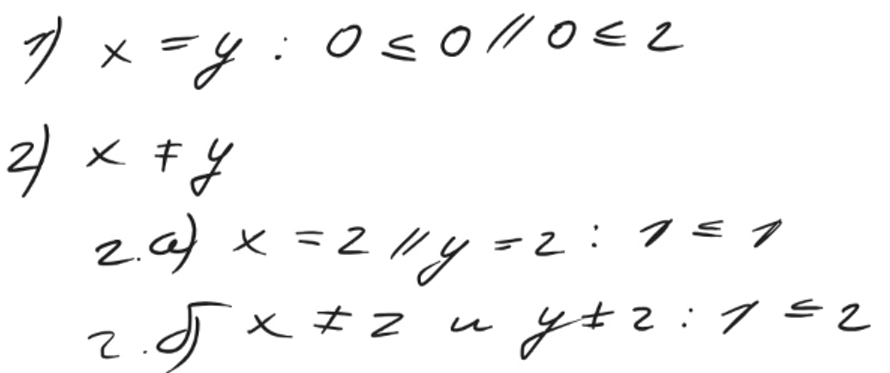 1) x = y : 0 ≤ 0 // 0 ≤ 2
2) x ≠ y
2.а) x = z // y = z : 1 ≤ 1
2.б) x ≠ z и y ≠ z : 1 ≤ 2